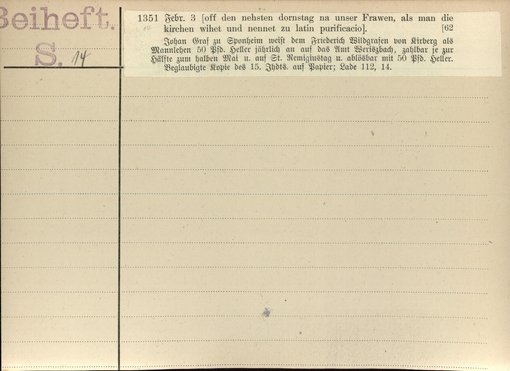 Beiheft.
S. 14
1351 Febr. 3 [off den nehsten dornstag na unser Frawen, als man die
kirchen wihet und nennet zu latin purificacio]. [62
Johan Graf zu Sponheim weist dem Friederich Wildgrafen von Kirberg als
Mannlehen 50 Pfd. Heller jährlich an auf das Amt Weriszbach, zahlbar je zur
Hälfte zum halben Mai u. auf St. Remigiustag u. ablösbar mit 50 Pfd. Heller.
Beglaubigte Kopie des 15. Jhdts. auf Papier; Lade 112, 14.